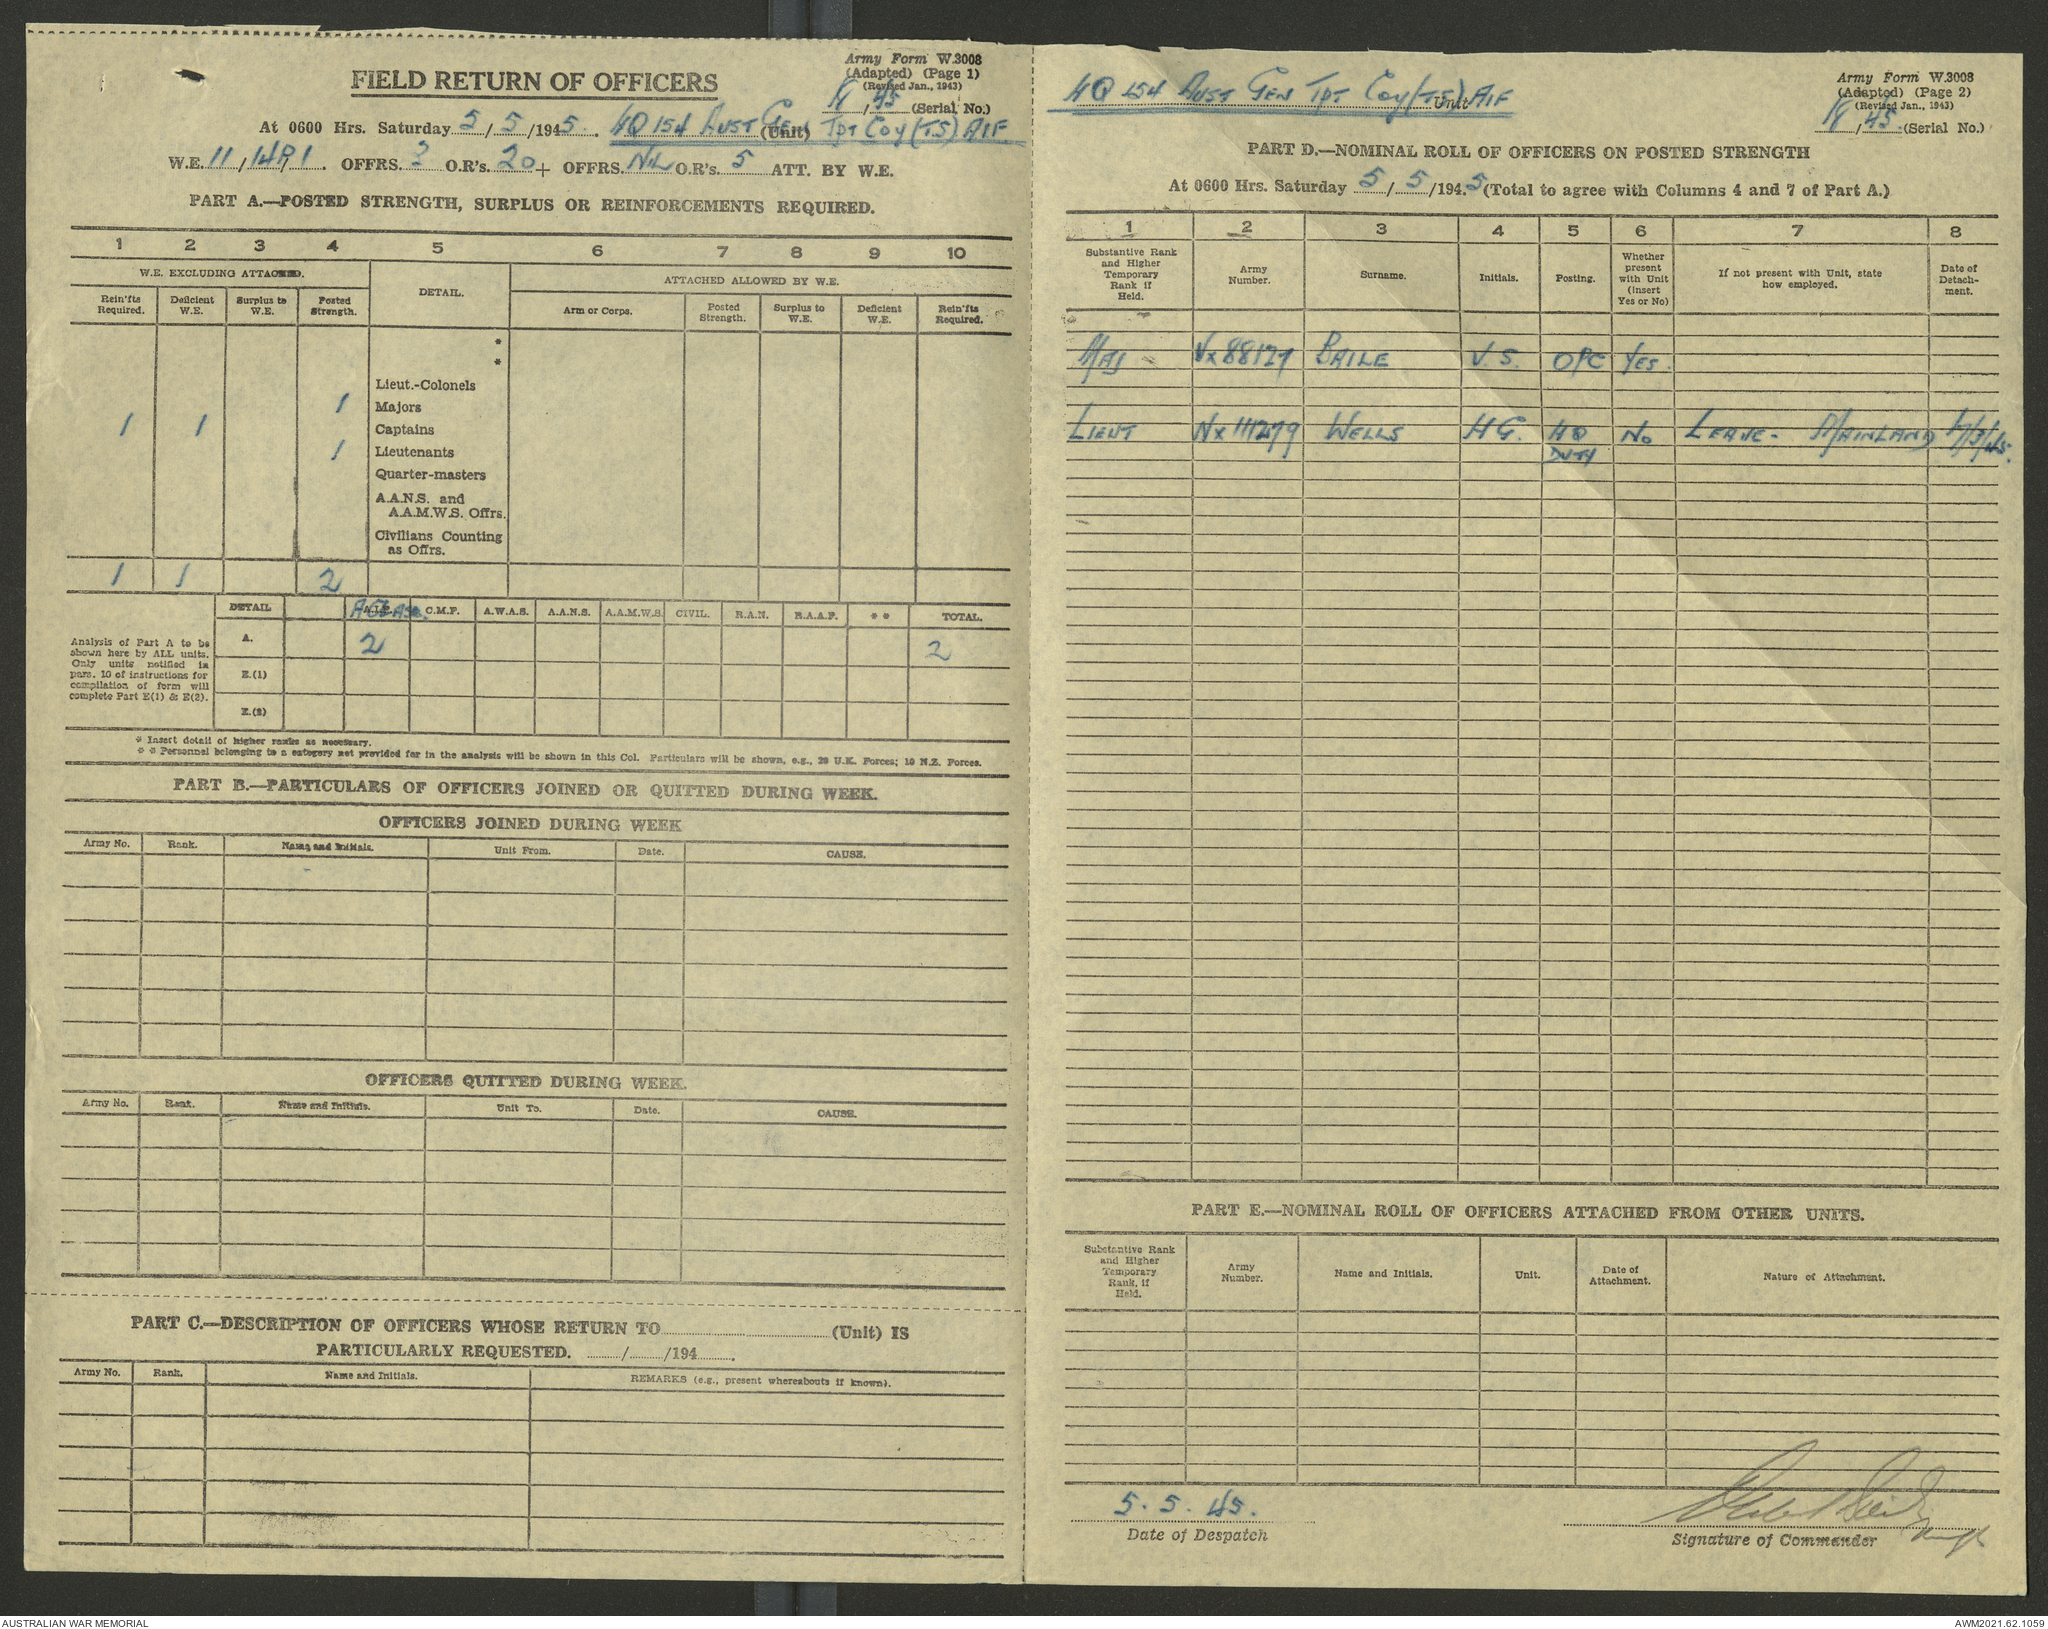 FIELD RETURN OF OFFICERS
Army Form W.3008
(Adapted) (Page 1)
(Revised Jan., 1943)
18/45 (Serial No.)
At 0600 Hrs. Saturday 5/5/1945. HQ 154 AUST GEN (Unit) TPT COY (TS) AIF.
W.E. 11/14P/1. OFFRS. 3 O.R's. 20 + OFFRS. NIL O.R's. 5 ATT. BY W.E.
PART A.—POSTED STRENGTH, SURPLUS OR REINFORCEMENTS REQUIRED.
1 2 3 4 5 6 7 8 9 10
W.E. EXCLUDING ATTACHED. DETAIL. ATTACHED ALLOWED BY W.E.
Rein'fts Required. Deficient W.E. Surplus to W.E. Posted Strength. Arm or Corps. Posted Strength. Surplus to W.E. Deficient W.E. Rein'fts Required.
*
*
Lieut.-Colonels
1 Majors
1 1 Captains
1 Lieutenants
Quarter-masters
A.A.N.S. and
A.A.M.W.S. Offrs.
Civilians Counting
as Offrs.
1 1 2
DETAIL A.I.F. C.M.F. A.W.A.S. A.A.N.S. A.A.M.W.S. CIVIL. R.A.N. R.A.A.F. * * TOTAL.
Analysis of Part A to be
shown here by ALL units.
Only units notified in
para. 10 of instructions for
compilation of form will
complete Part E(1) & E(2).
A. 2 2
E.(1)
E.(2)
* Insert detail of higher ranks as necessary.
* * Personnel belonging to a category not provided for in the analysis will be shown in this Col. Particulars will be shown, e.g., 20 U.K. Forces; 10 N.Z. Forces.
PART B.—PARTICULARS OF OFFICERS JOINED OR QUITTED DURING WEEK.
OFFICERS JOINED DURING WEEK
Army No. Rank. Name and Initials. Unit From. Date. CAUSE.
OFFICERS QUITTED DURING WEEK.
Army No. Rank. Name and Initials. Unit To. Date. CAUSE.
PART C.—DESCRIPTION OF OFFICERS WHOSE RETURN TO (Unit) IS
PARTICULARLY REQUESTED. / /194 .
Army No. Rank. Name and Initials. REMARKS (e.g., present whereabouts if known).
HQ 154 AUST GEN TPT COY (TS) Unit AIF
Army Form W.3008
(Adapted) (Page 2)
(Revised Jan., 1943)
18/45. (Serial No.)
PART D.—NOMINAL ROLL OF OFFICERS ON POSTED STRENGTH
At 0600 Hrs. Saturday 5/5/1945 (Total to agree with Columns 4 and 7 of Part A.)
1 2 3 4 5 6 7 8
Substantive Rank and Higher Temporary Rank if Held. Army Number. Surname. Initials. Posting. Whether present with Unit (Insert Yes or No) If not present with Unit, state how employed. Date of Detach- ment.
MAJ NX88127 BAILE V.S. O/C YES.
LIEUT NX111279 WELLS H.G. HQ DUTY NO LEAVE - MAINLAND
PART E.—NOMINAL ROLL OF OFFICERS ATTACHED FROM OTHER UNITS.
Substantive Rank and Higher Temporary Rank, if Held. Army Number. Name and Initials. Unit. Date of Attachment. Nature of Attachment.
5. 5. 45.
Date of Despatch
Signature of Commander
AUSTRALIAN WAR MEMORIAL
AWM2021.62.1059